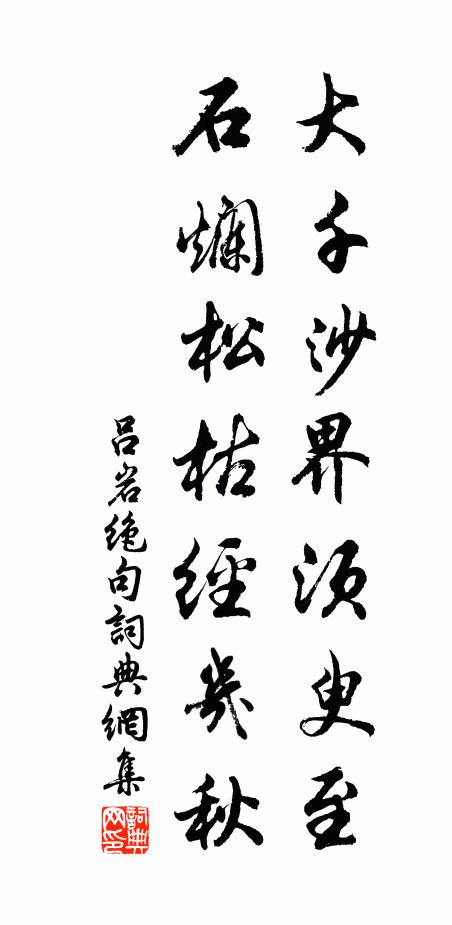 大千沙界須臾至
石爛松枯經幾秋
吕岩绝句詞典網集
詞典网印